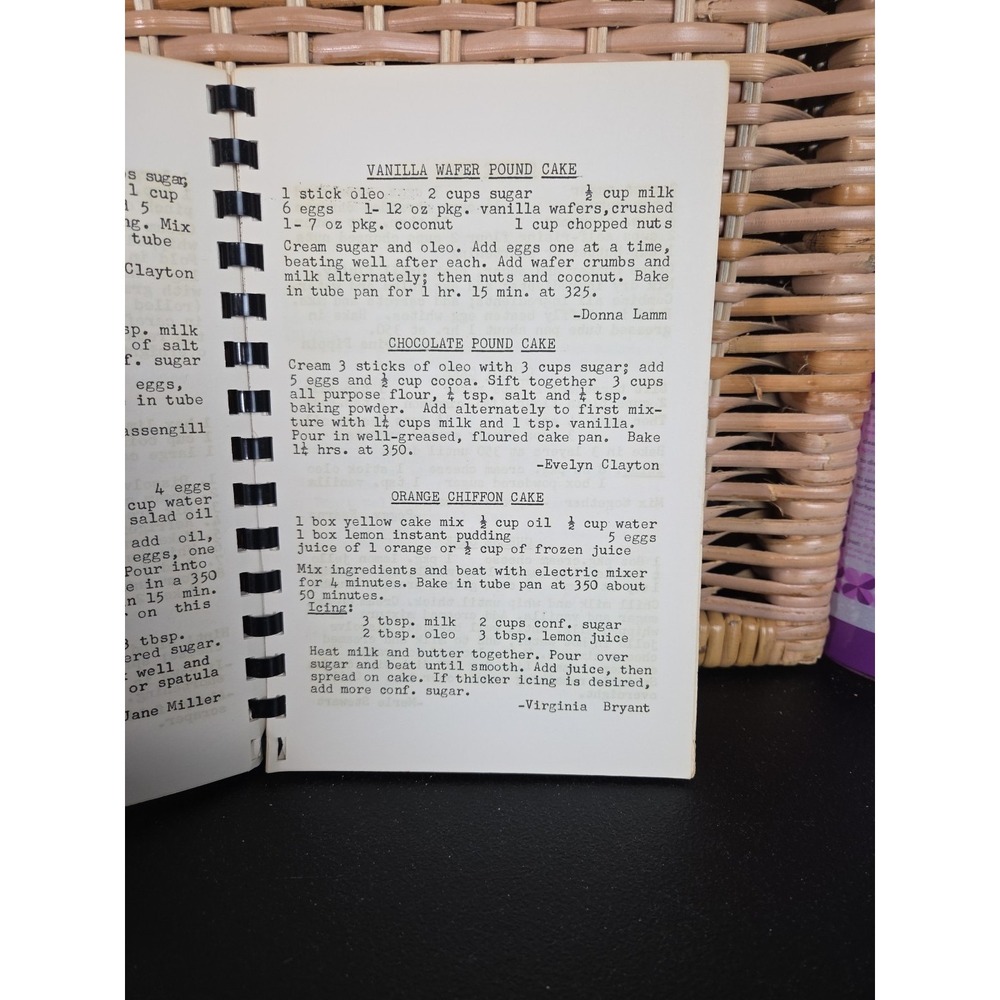 s sugar,
1 cup
5
ng. Mix
tube
Clayton
sp. milk
of salt
f. sugar
eggs,
in tube
assengill
4 eggs
cup water
salad oil
add oil,
eggs, one
Pour into
e in a 350
n 15 min.
r on this
3 tbsp.
ered sugar.
well and
or spatula
Jane Miller
VANILLA WAFER POUND CAKE
1 stick oleo 2 cups sugar ½ cup milk
6 eggs 1- 12 oz pkg. vanilla wafers,crushed
1- 7 oz pkg. coconut 1 cup chopped nuts
Cream sugar and oleo. Add eggs one at a time,
beating well after each. Add wafer crumbs and
milk alternately; then nuts and coconut. Bake
in tube pan for 1 hr. 15 min. at 325.
-Donna Lamm
CHOCOLATE POUND CAKE
Cream 3 sticks of oleo with 3 cups sugar; add
5 eggs and ½ cup cocoa. Sift together 3 cups
all purpose flour, ¼ tsp. salt and ¼ tsp.
baking powder. Add alternately to first mix-
ture with 1¼ cups milk and 1 tsp. vanilla.
Pour in well-greased, floured cake pan. Bake
1¼ hrs. at 350.
-Evelyn Clayton
ORANGE CHIFFON CAKE
1 box yellow cake mix ½ cup oil ½ cup water
1 box lemon instant pudding 5 eggs
juice of 1 orange or ½ cup of frozen juice
Mix ingredients and beat with electric mixer
for 4 minutes. Bake in tube pan at 350 about
50 minutes.
Icing:
3 tbsp. milk 2 cups conf. sugar
2 tbsp. oleo 3 tbsp. lemon juice
Heat milk and butter together. Pour over
sugar and beat until smooth. Add juice, then
spread on cake. If thicker icing is desired,
add more conf. sugar.
-Virginia Bryant